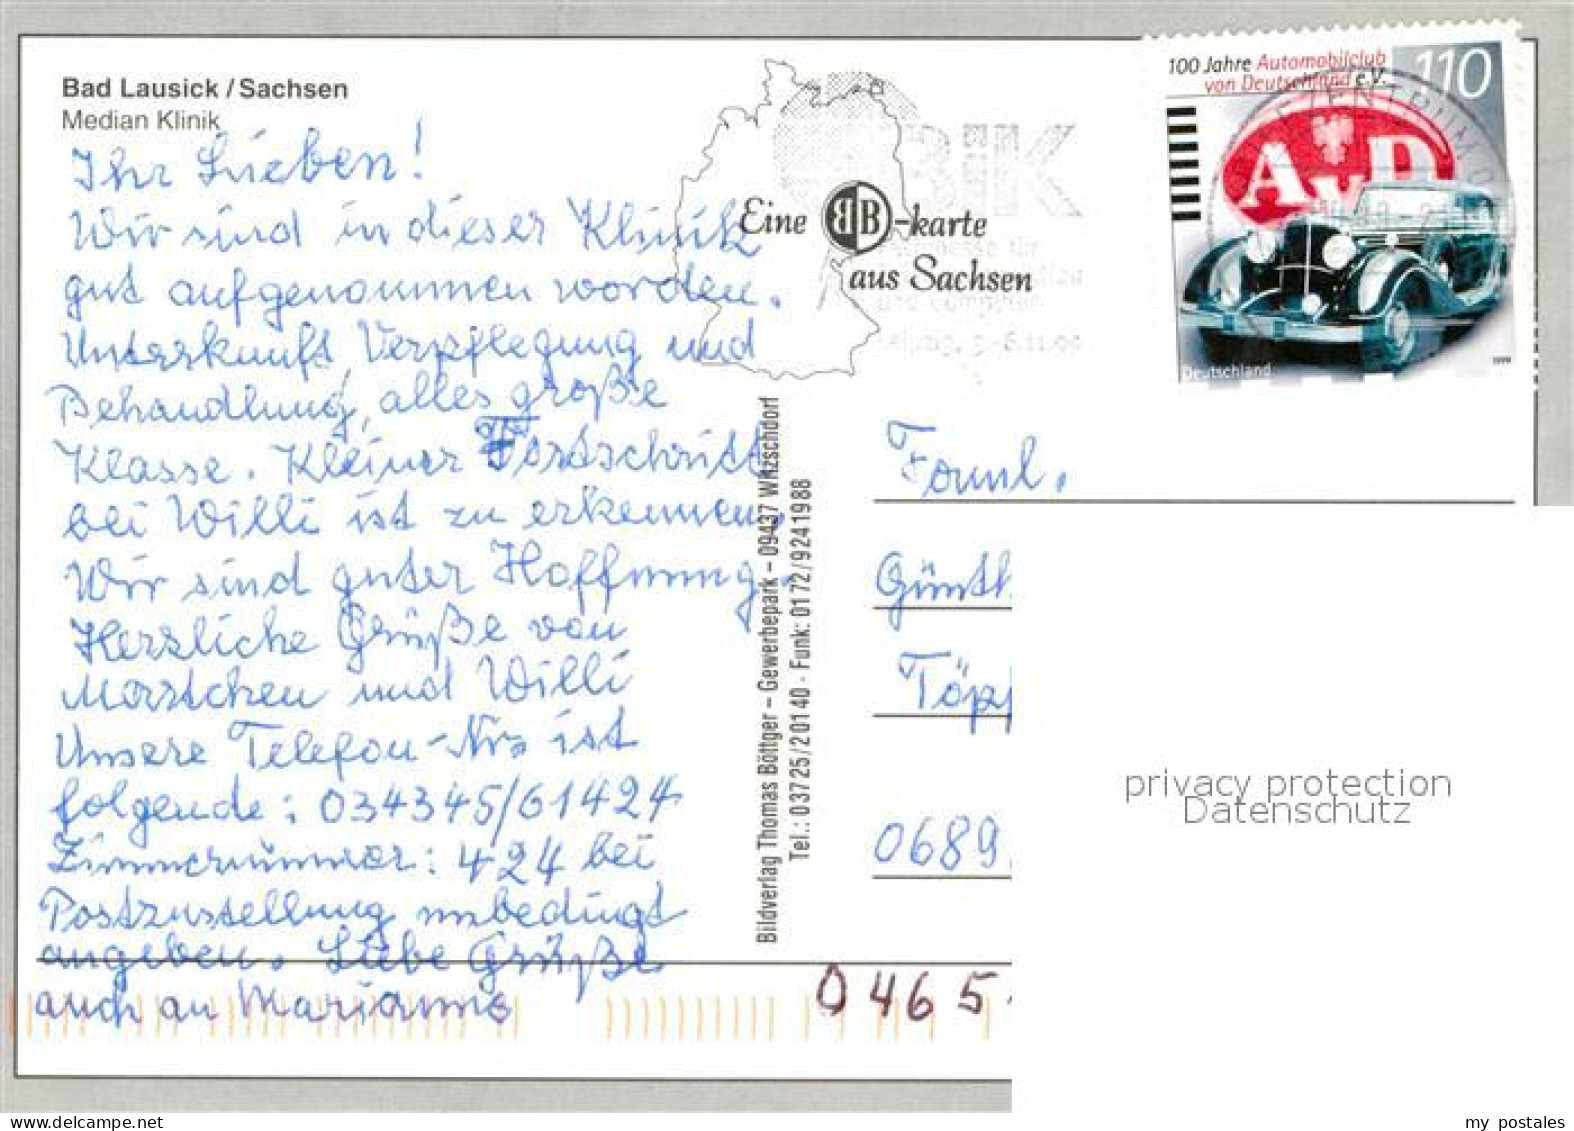 Bad Lausick / Sachsen
Median Klinik
Ihr Lieben!
Wir sind in dieser Klinik
gut aufgenommen worden.
Unterkunft, Verpflegung und
Behandlung, alles große
Klasse. Kleiner Fortschritt
bei Willi ist zu erkennen.
Wir sind guter Hoffnung.
Herzliche Grüße von
und Willi
Unsere Telefon-Nr. ist
folgende: 034345/61424
Zimmernummer: 424 bei
Postzustellung unbedingt
angeben. Liebe Grüße
auch an Marianne
Eine BB-karte
aus Sachsen
BIK
und Computer
Leipzig, 3.-6.11.99
100 Jahre Automobilclub
von Deutschland e.V.
110
AvD
Deutschland
1999
Bildverlag Thomas Böttger – Gewerbepark – 09437 Witzschdorf
Tel.: 03725/20140 · Funk: 0172/9241988
Faml.
Günth
Töpf
0689
0465
privacy protection
Datenschutz
my postales